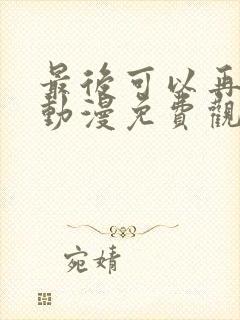 最後可以再
動漫免費觀
宛婧